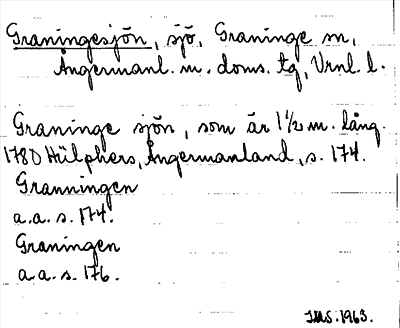 Graningesjön, sjö, Graninge sn,
Ångermanl. m. doms. tg, Vrnl. l.
Graninge sjön, som är 1 1/2 m. lång.
1780 Hülphers, Ångermanland, s. 174.
Granningen
a.a. s. 174.
Graningen
a.a. s. 176.
IMS. 1963.